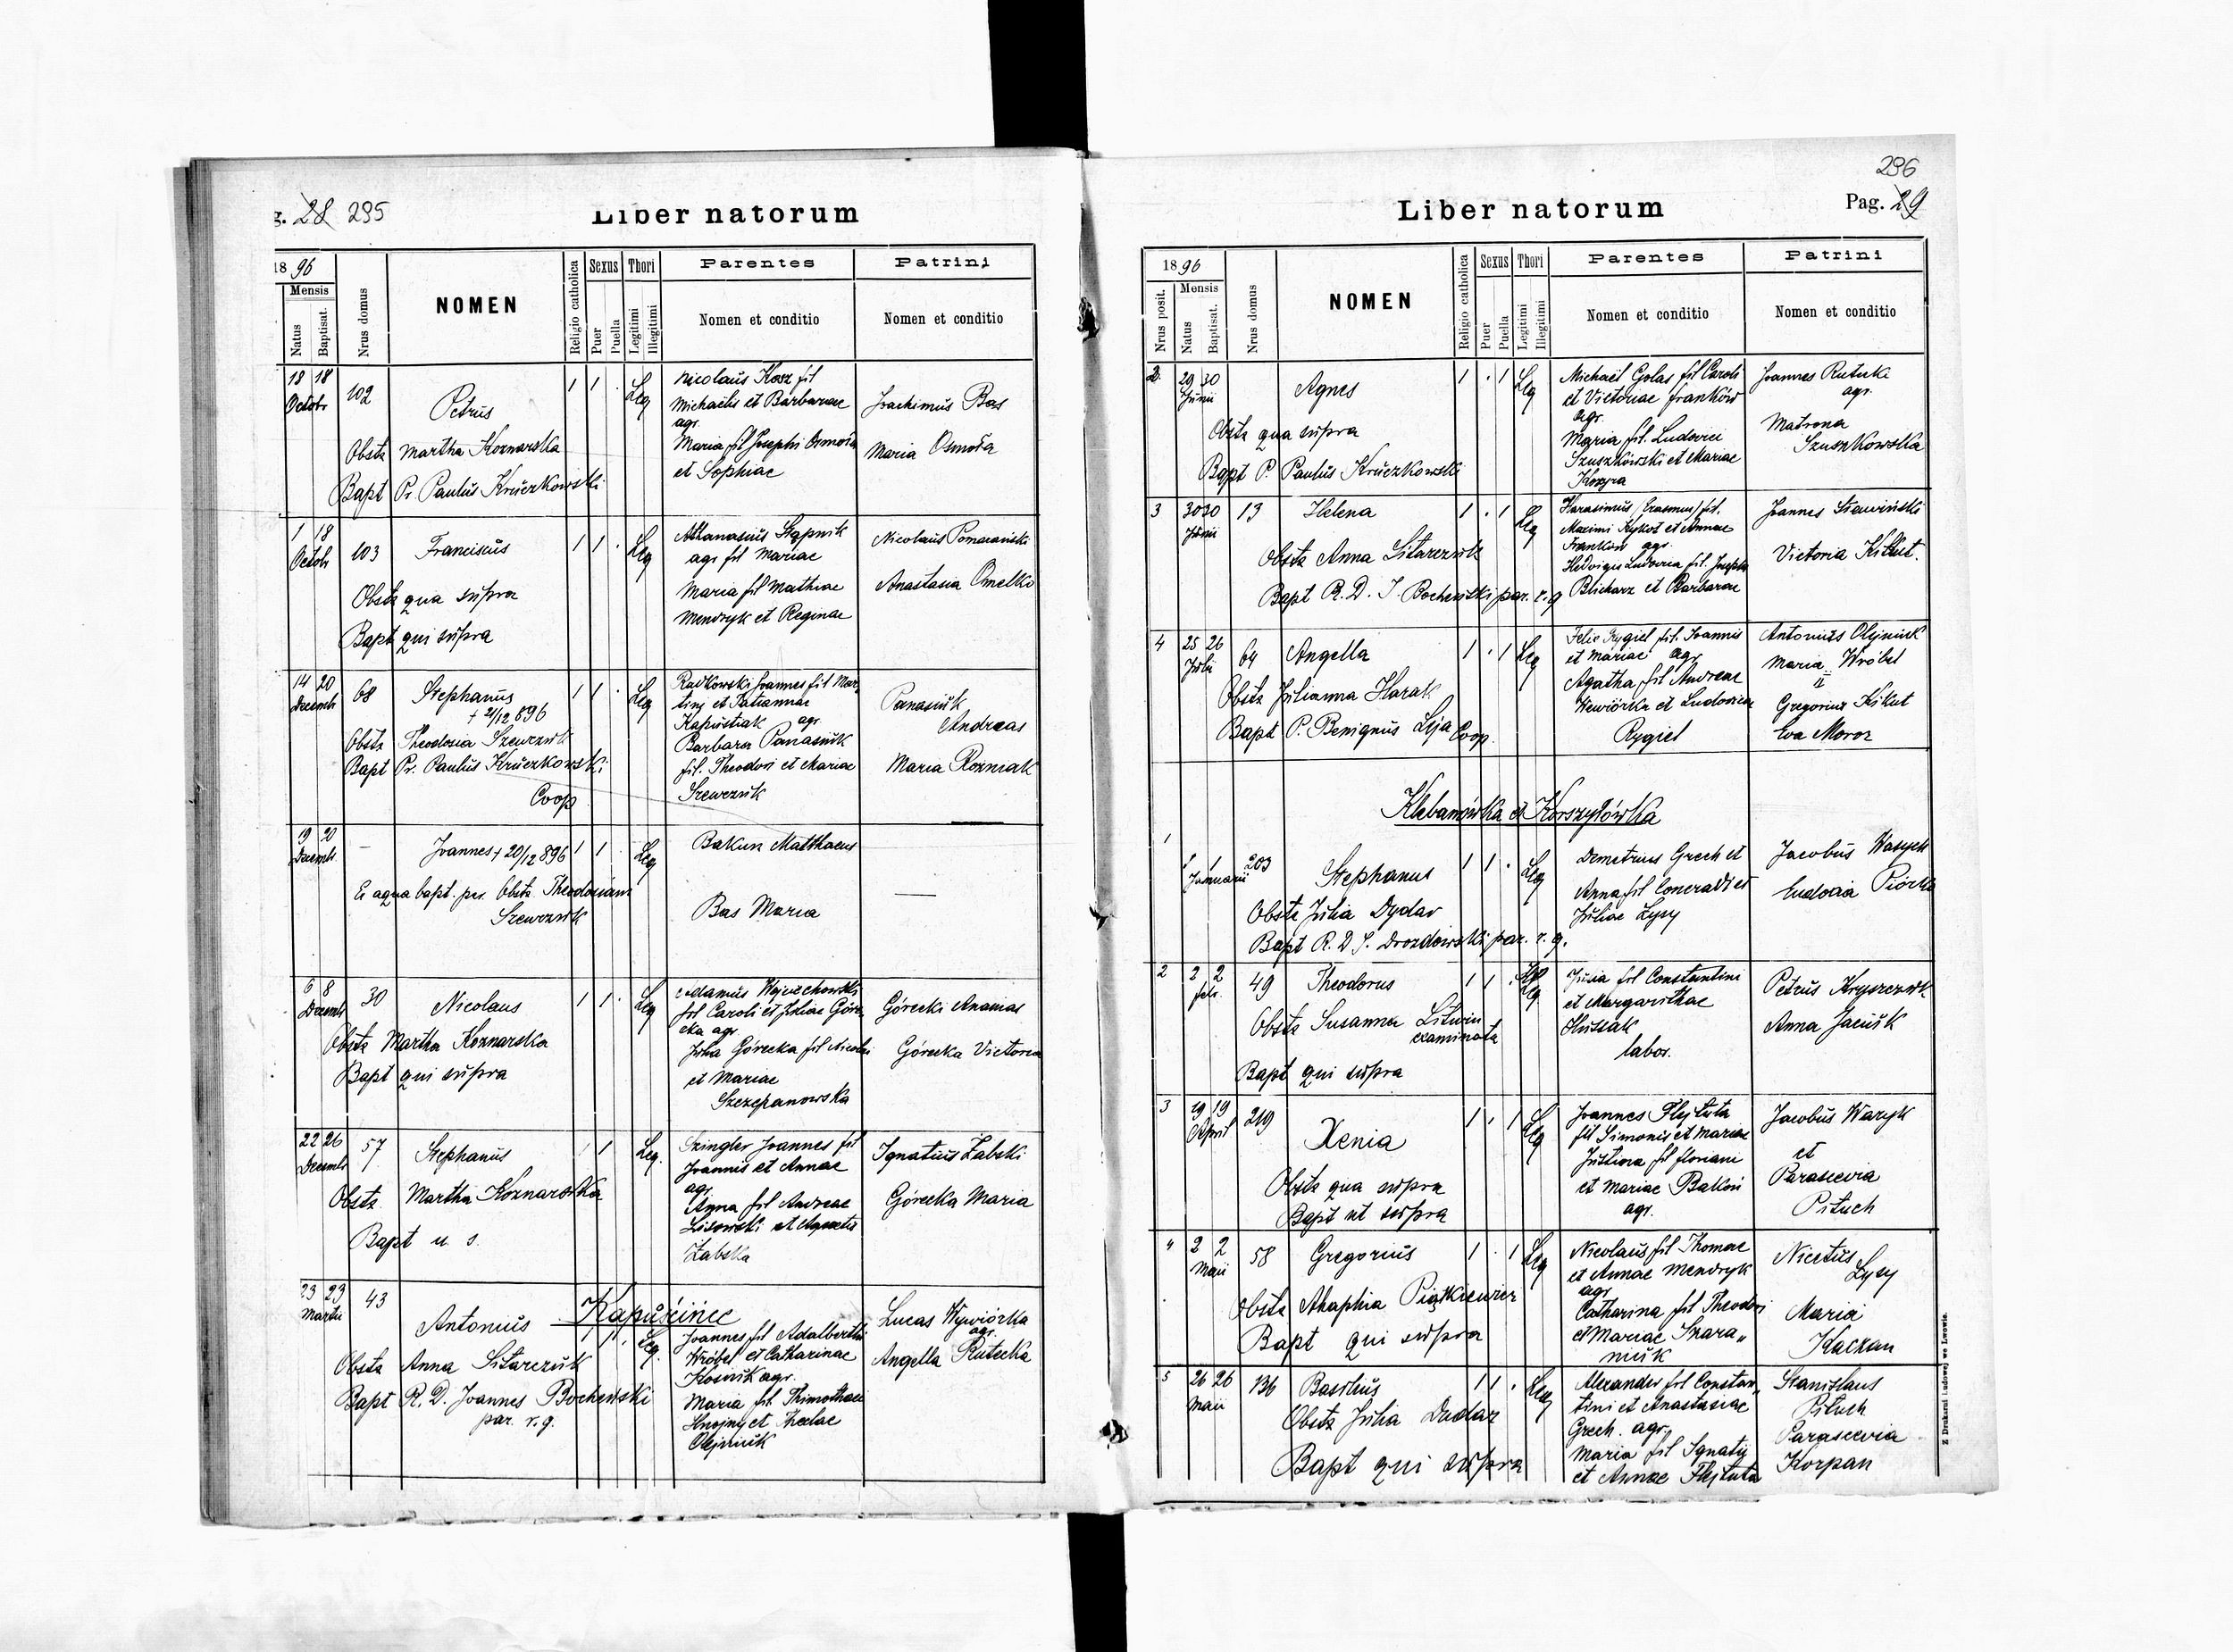 g. 28 295
Liber natorum
1896
Mensis
Natus
Baptisat.
Nrus domus
NOMEN
Religio catholica
Sexus
Puer
Puella
Thori
Legitimi
Illegitimi
Parentes
Nomen et conditio
Patrini
Nomen et conditio
18 18
Octobr
102
Petrus
1 1 . Leg
Nicolaus Kosz fil
Michaelis et Barbarae
agr.
Maria fil Josephi Osmoła
et Sophiae
Joachimus Bas
Maria Osmoła
Obstz Martha Koznarska
Bapt Pr. Paulus Kruczkowski
1 18
Octob
103
Franciscus
1 1 . Leg
Athanasius Stąpnik
agr fil Mariae
Maria fil Mathiae
Mendryk et Reginae
Nicolaus
Anastasia Omelko
Obstz qua supra
Bapt qui supra
14 20
Decemb
68
Stephanus
+ 21/12 896
1 1 . Leg
Radkowski Joannes fil Mar
tini et Tatiannae
Kapustiak agr
Barbara Panasiuk
fil. Theodori et Mariae
Szewczuk
Panasiuk
Andreas
Maria Rozniak
Obstz Theodosia Szewczuk
Bapt Pr. Paulus Kruczkowski
Coop
19 20
Decemb.
—
Joannes + 20/12 896
1 1 . Leg
Bakun Matthaeus
Bas Maria
—
Ex aqua bapt. per. Obstz. Theodosiam
Szewczuk
6 8
Decemb
30
Nicolaus
1 1 . Leg
Adamus Wojciechowski
fil Caroli et Juliae Góre
cka agr
Julia Górecka fil Nicolai
et Mariae
Szczepanowska
Górecki Ananias
Górecka Victoria
Obstz Martha Koznarska
Bapt qui supra
22 26
Decemb
57
Stephanus
1 Leg.
Szingler Joannes fil
Joannis et Annae
agr
Anna fil Andreae
Lisowski et Agnetis
Żabska
Ignatius Żabski
Górecka Maria
Obstz. Martha Koznarska
Bapt u. s.
Kapuścińce
23 23
Martii
43
Antonius
1 . Leg.
Joannes fil Adalberti
Wróbel et Catharinae
Kosiuk agr.
Maria fil. Thimothaei
Hnojny et Theclae
Olejniuk
Lucas Wywiórka
agr.
Angella Rutecka
Obstz Anna Sitarczuk
Bapt R. D. Joannes Bochenski
par. r. g.
296
Pag. 29
Liber natorum
1896
Nrus posit.
Mensis
Natus
Baptisat.
Nrus domus
NOMEN
Religio catholica
Sexus
Puer
Puella
Thori
Legitimi
Illegitimi
Parentes
Nomen et conditio
Patrini
Nomen et conditio
2.
29 30
Junii
Agnes
1 . 1 Leg
Michaël Golas fil Caroli
et Victoriae Franków
agr.
Maria fil. Ludovici
Szuszkowski et Mariae
Kozyra
Joannes Rutecki
agr.
Matrona
Szuszkowska
Obstz qua supra
Bapt P. Paulus Kruczkowski
3
30 30
Junii
13
Helena
1 . 1 Leg
Harasimus /Erasmus/ fil.
Maximi Kykot et Annae
Franków agr.
Hedvigis Ludovica fil. Josephi
Blicharz et Barbarae
Joannes
Victoria Kikut.
Obstz Anna Sitarczuk
Bapt R. D. J. Bochenski par. r. g
4
25 26
Julii
64
Angella
1 . 1 Leg
Felix Rygiel fil. Joannis
et Mariae agr
Agatha fil Andreae
Wewiórka et Ludovicae
Rygiel
Antonius Olejniuk
Maria Wróbel
Gregorius Kikut
Eva Moroz
Obstz Julianna Harak
Bapt P. Benignus Lyja Coop.
Klebanówka et Korszyłówka
1
1 1
Januarii
203
Stephanus
1 1 . Leg
Demetrius Grech et
Anna fil Conradi et
Juliae Łysy
Jacobus Wasyck
Eudoxia Piórko
Obstz Julia Dydar
Bapt R. D S. Drozdowski par. r. g.
2
2 2
febr.
49
Theodorus
1 1 . Leg
Julia fil Constantini
et Margarithae
Hussak
labor.
Petrus Kryszczuk
Anna Jaciuk
Obstz Susanna Litwin
examinata
Bapt qui supra
3
19 19
April
219
Xenia
1 . 1 Leg
Joannes Flejtuta
fil Simonis et Mariae
Justina fil floriani
et Mariae Bakun
agr.
Jacobus Waryk
et
Parascevia
Pituch
Obstz qua supra
Bapt ut supra
4
2 2
Maii
58
Gregorius
1 . 1 Leg
Nicolaus fil Thomae
et Annae Mendryk
agr
Catharina fil Theodori
et Mariae Skara„
niuk
Nicetus
Łysy
Maria
Kaczan
Obstz Ahaphia Piątkiewicz
Bapt qui supra
5
26 26
Maii
136
Basilius
1 1 . Leg
Alexander fil Constan„
tini et Anastasiae
Grech. agr.
Maria fil Ignatii
et Annae Flejtuta
Stanislaus
Pituch
Parascevia
Korpan
Obstz Julia Dudar
Bapt qui supra
Z Drukarni Ludowej we Lwowie.